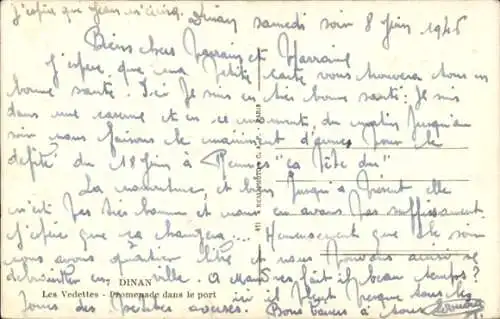 J'espère que Jean m'écrira. Dinan samedi soir 8 juin 1946
Biens chers Parrain et Marraine
J'espère que ma petite carte vous trouvera tous en
bonne santé. Ici je suis en très bonne santé. Je suis
dans une caserne et en ce moment du matin jusqu'au
soir nous faisons le maniement d'armes pour le
défilé du 18 juin à Rennes "ca fête du"
La nourriture, et bien jusqu'à présent elle
n'est pas très bonne et nous en avons pas suffisamment
J'espère que ça changera... Heureusement que le soir
nous avons quartier libre et nous pouvons aussi se
débrouiller en ville. A fait il beau temps?
7. DINAN
Les Vedettes - Promenade dans le port
ici il pleut presque tous les
jours des petites averses. Bons baisers à tous